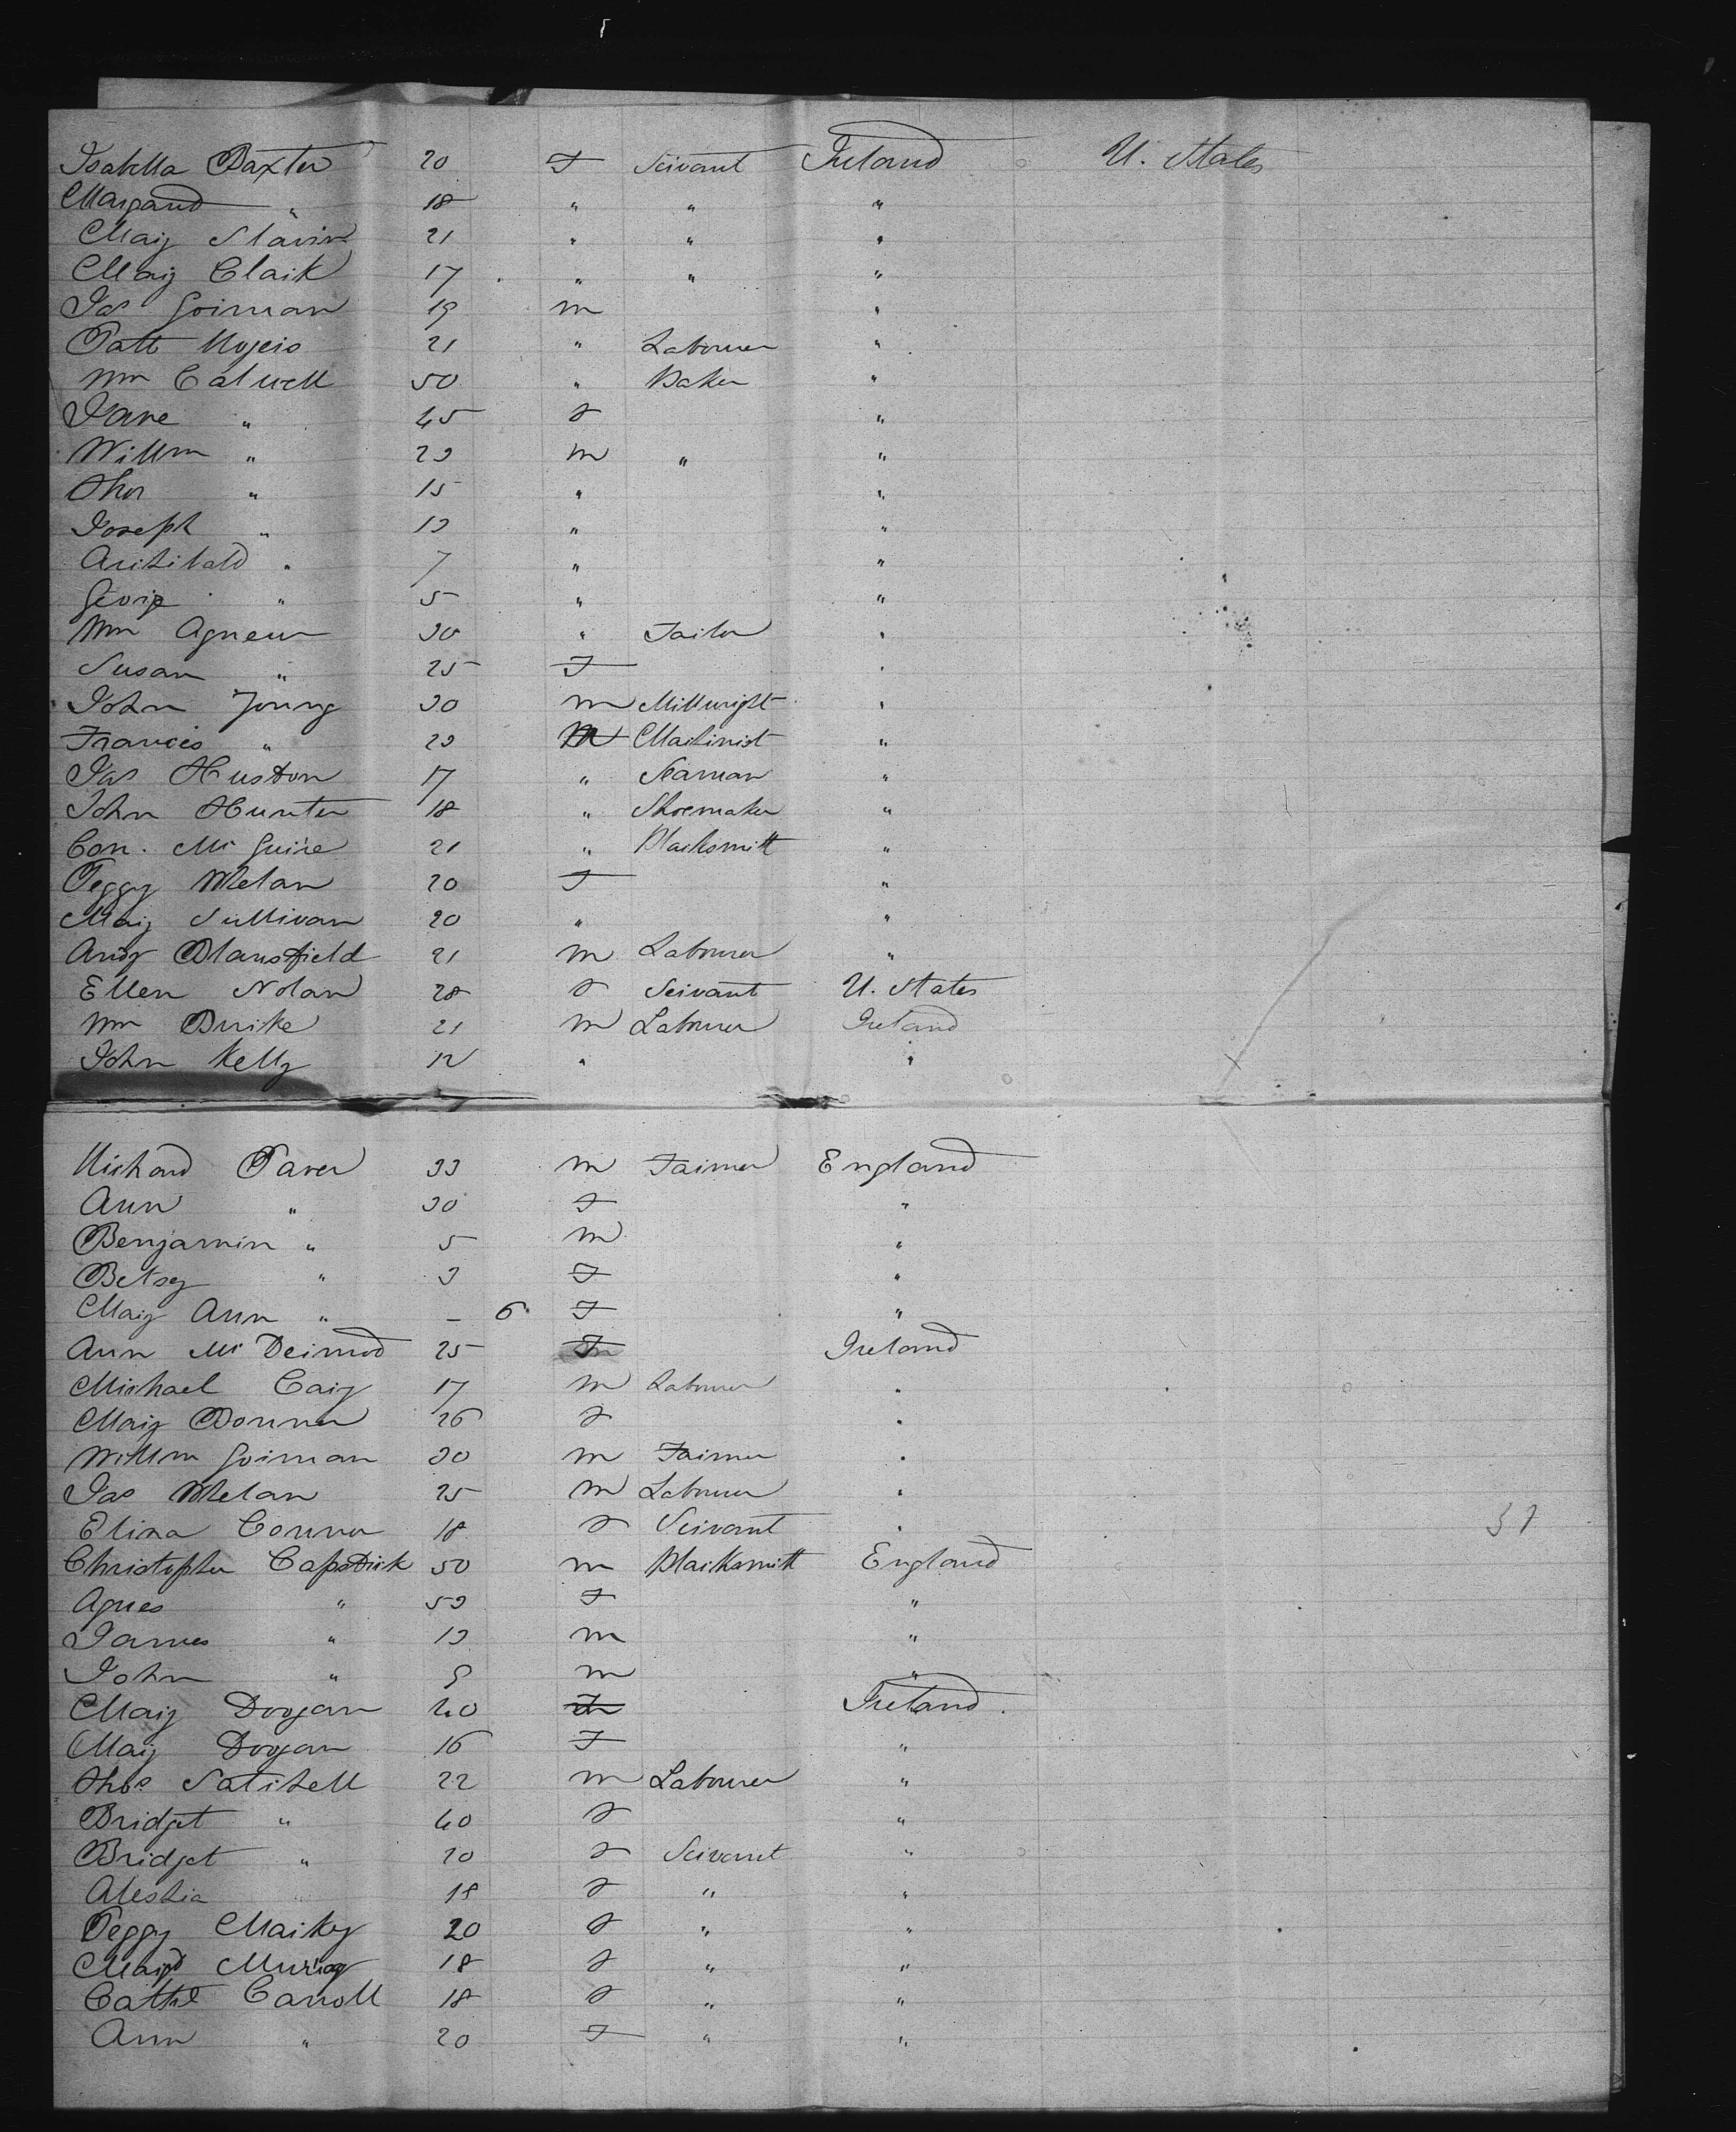 Isabella Baxter 20 F Servant Ireland U. States
Margaret " 18 " " "
Mary Slavin 21 " " "
Mary Clark 17 " " "
Jas Gorman 19 m "
Patt Rogers 21 " Labourer "
Wm Calwell 50 " Baker "
Jane " 45 F "
Willm " 23 m " "
Thos " 15 " "
Joseph " 13 " "
Archibald " 7 " "
George " 5 " "
Wm Agnew 30 " Tailor "
Susan " 25 F "
John Young 30 m Millwright "
Francis " 23 M Machinist "
Jas Huston 17 " Seaman "
John Hunter 18 " Shoemaker "
Con. McGuire 21 " Blacksmith "
Peggy Whelan 20 F "
Mary Sullivan 20 " "
Andy Blansfield 21 m Labourer "
Ellen Nolan 28 F Servant U. States
Wm Burke 21 m Labourer Ireland
John Kelly 12 " "
Richard Paver 33 m Farmer England
Ann " 30 F "
Benjamin " 5 m "
Betsy " 3 F "
Mary Ann " - 6 F "
Ann McDermod 25 F Ireland
Michael Cary 17 m Labourer "
Mary Connor 26 F "
Willm Gorman 30 m Farmer "
Jas Whelan 25 m Labourer "
Eliza Connor 18 F Servant "
Christopher Capstick 50 m Blacksmith England
Agnes " 53 F "
James " 13 m "
John " 9 m "
Mary Doogan 40 F Ireland
Mary Doogan 16 F "
Thos Satchell 22 m Labourer "
Bridget " 40 F "
Bridget " 20 F Servant "
Aleshia " 18 F " "
Peggy Markey 20 F " "
Margt Murray 18 F " "
Cathe Carroll 18 F " "
Ann " 20 F " "